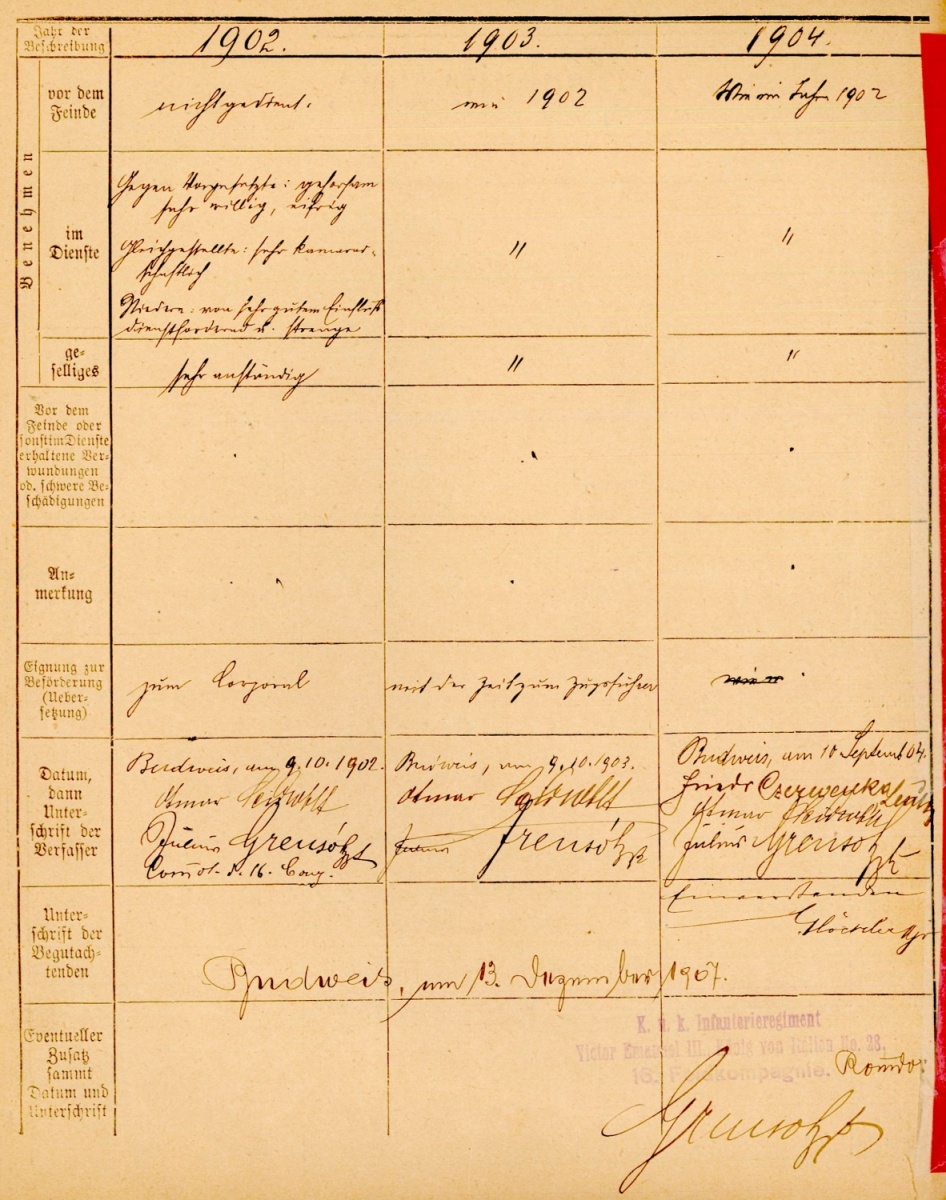 Jahr der
Beschreibung
1902.
1903.
1904.
Benehmen
vor dem
Feinde
nicht gedient.
wie 1902
Wie im Jahre 1902
im
Dienste
Gegen Vorgesetzte: gehorsam
sehr willig, eifrig
Gleichgestellte: sehr kamerad-
schaftlich
Niedere: von sehr gutem Einfluß
dienstfordernd u. strenge
"
"
ge-
selliges
sehr anständig
"
"
Vor dem
Feinde oder
sonst im Dienste
erhaltene Ver-
wundungen
od. schwere Be-
schädigungen
An-
merkung
Eignung zur
Beförderung
(Ueber-
setzung)
zum Corporal
mit der Zeit zum Zugsführer
Datum,
dann
Unter-
schrift der
Verfasser
Budweis, am 9.10.1902.
Otmar
Julius Grensó Hptm
Comdt. d. 16. Comp.
Budweis, am 9.10.1903.
Otmar
Julius
Budweis, am 10 Septemb 04.
Czerwenka
Otmar
Julius
Unter-
schrift der
Begutach-
tenden
Einverstanden
Budweis, am 13. Dezember 1907.
Eventueller
Zusatz
sammt
Datum und
Unterschrift
K. u. k. Infanterieregiment
Victor Emanuel III. König von Italien No. 28.
16. Feldkompagnie.